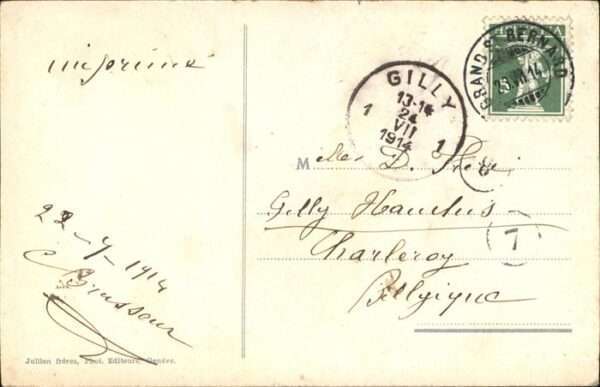 imprimé
GRAND ST BERNARD
23.VII.14
GILLY
13-14
1 24 1
VII
1914
M elles D.
Gilly Hauchis
Charleroy
Belgique
T
22-7-1914
Jullien frères, Phot. Editeurs, Genève.